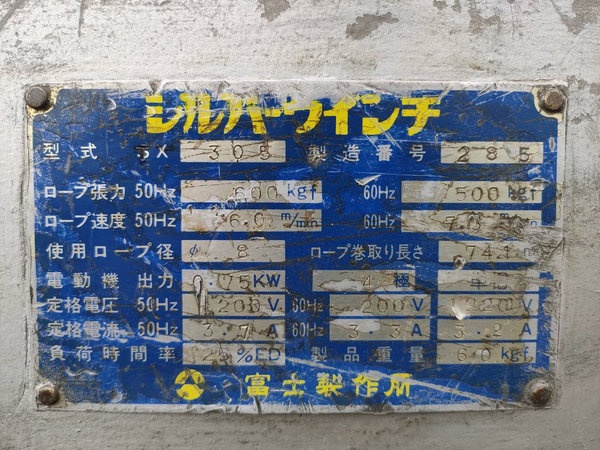 シルバーウインチ
型式 SX 305 製造番号 285
ロープ張力 50Hz 600 kgf 60Hz 500 kgf
ロープ速度 50Hz 6.0 m/min 60Hz m/min
使用ロープ径 φ 8 ロープ巻取り長さ
電動機 出力 0.75KW 4 極
定格電圧 50Hz 200V 60Hz 200V 220V
定格電流 50Hz 3.7A 60Hz 3.3A 3.2A
負荷時間率 25%ED 製品重量 60kgf
富士製作所